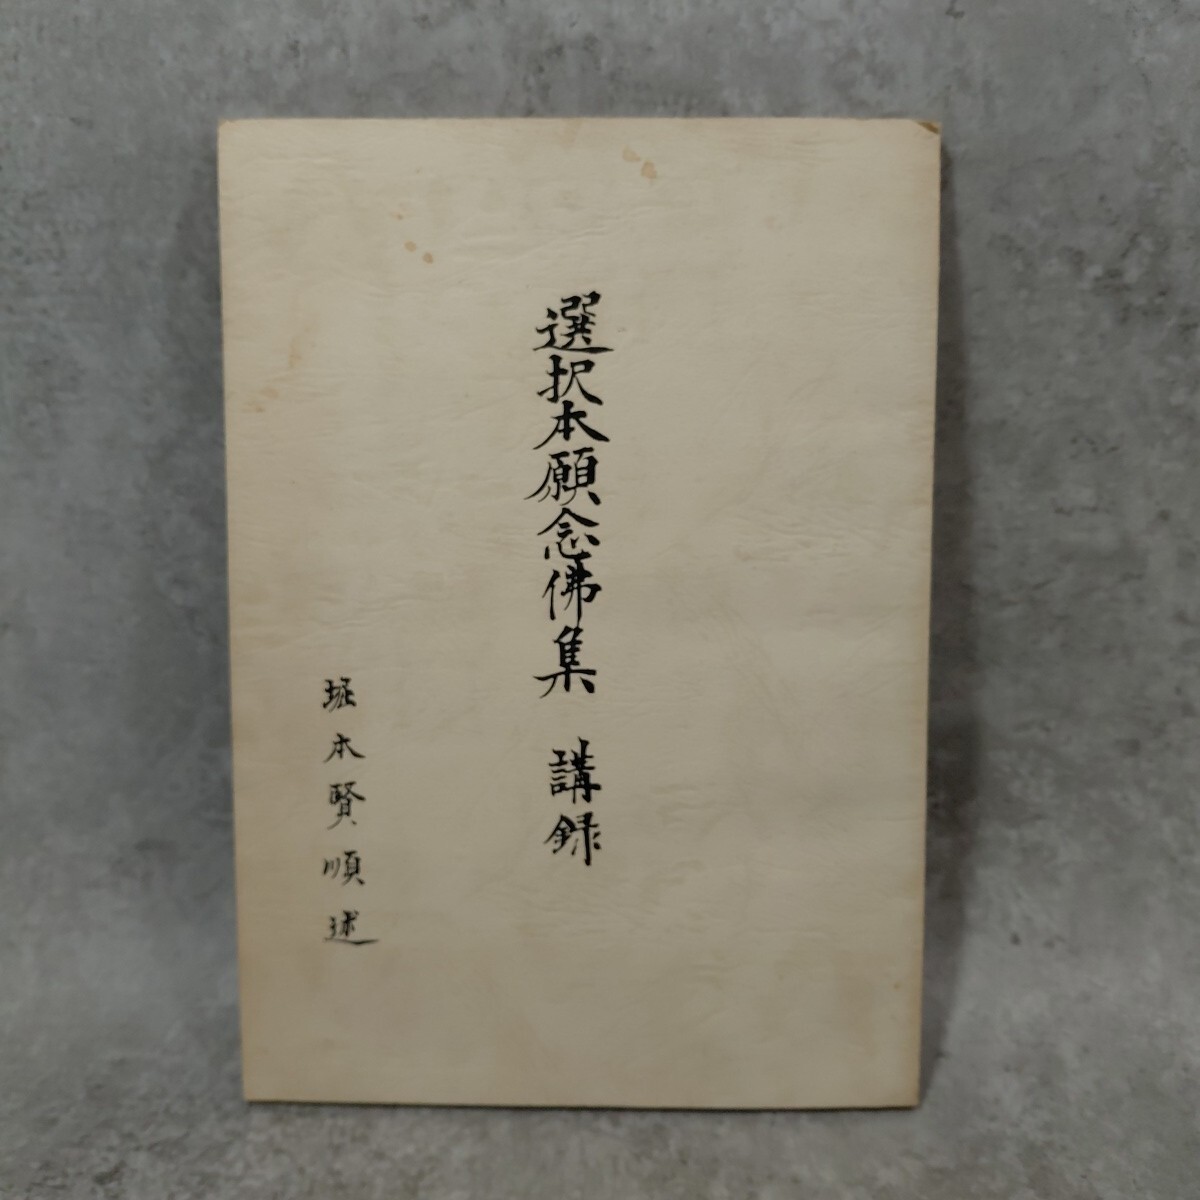 選択本願念佛集　講録
堀本賢順述